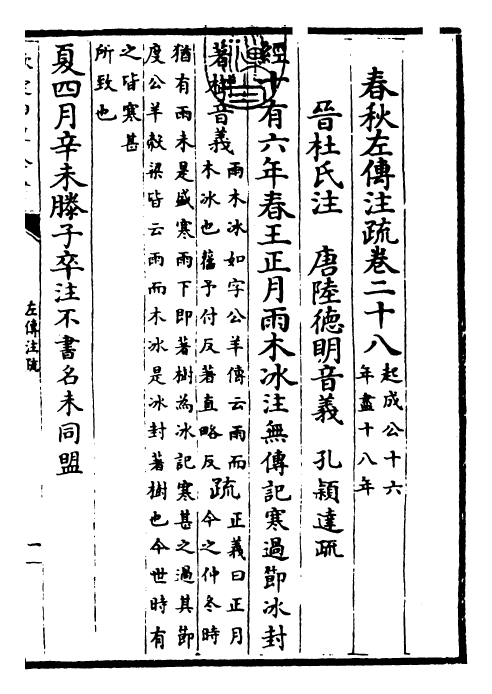 春秋左傳注疏卷二十八
起成公十六
年盡十八年
晉杜氏注　唐陸德明音義　孔穎達疏
經十有六年春王正月雨木冰注無傳記寒過節冰封
著樹音義
雨木冰如字公羊傳云雨而
木冰也舊予付反著直略反
疏
正義曰正月
今之仲冬時
猶有雨未是盛寒雨下即著樹為冰記寒甚之過其節
度公羊穀梁皆云雨而木冰是冰封著樹也今世時有
之皆寒甚
所致也
夏四月辛未滕子卒注不書名未同盟
左傳注疏
一